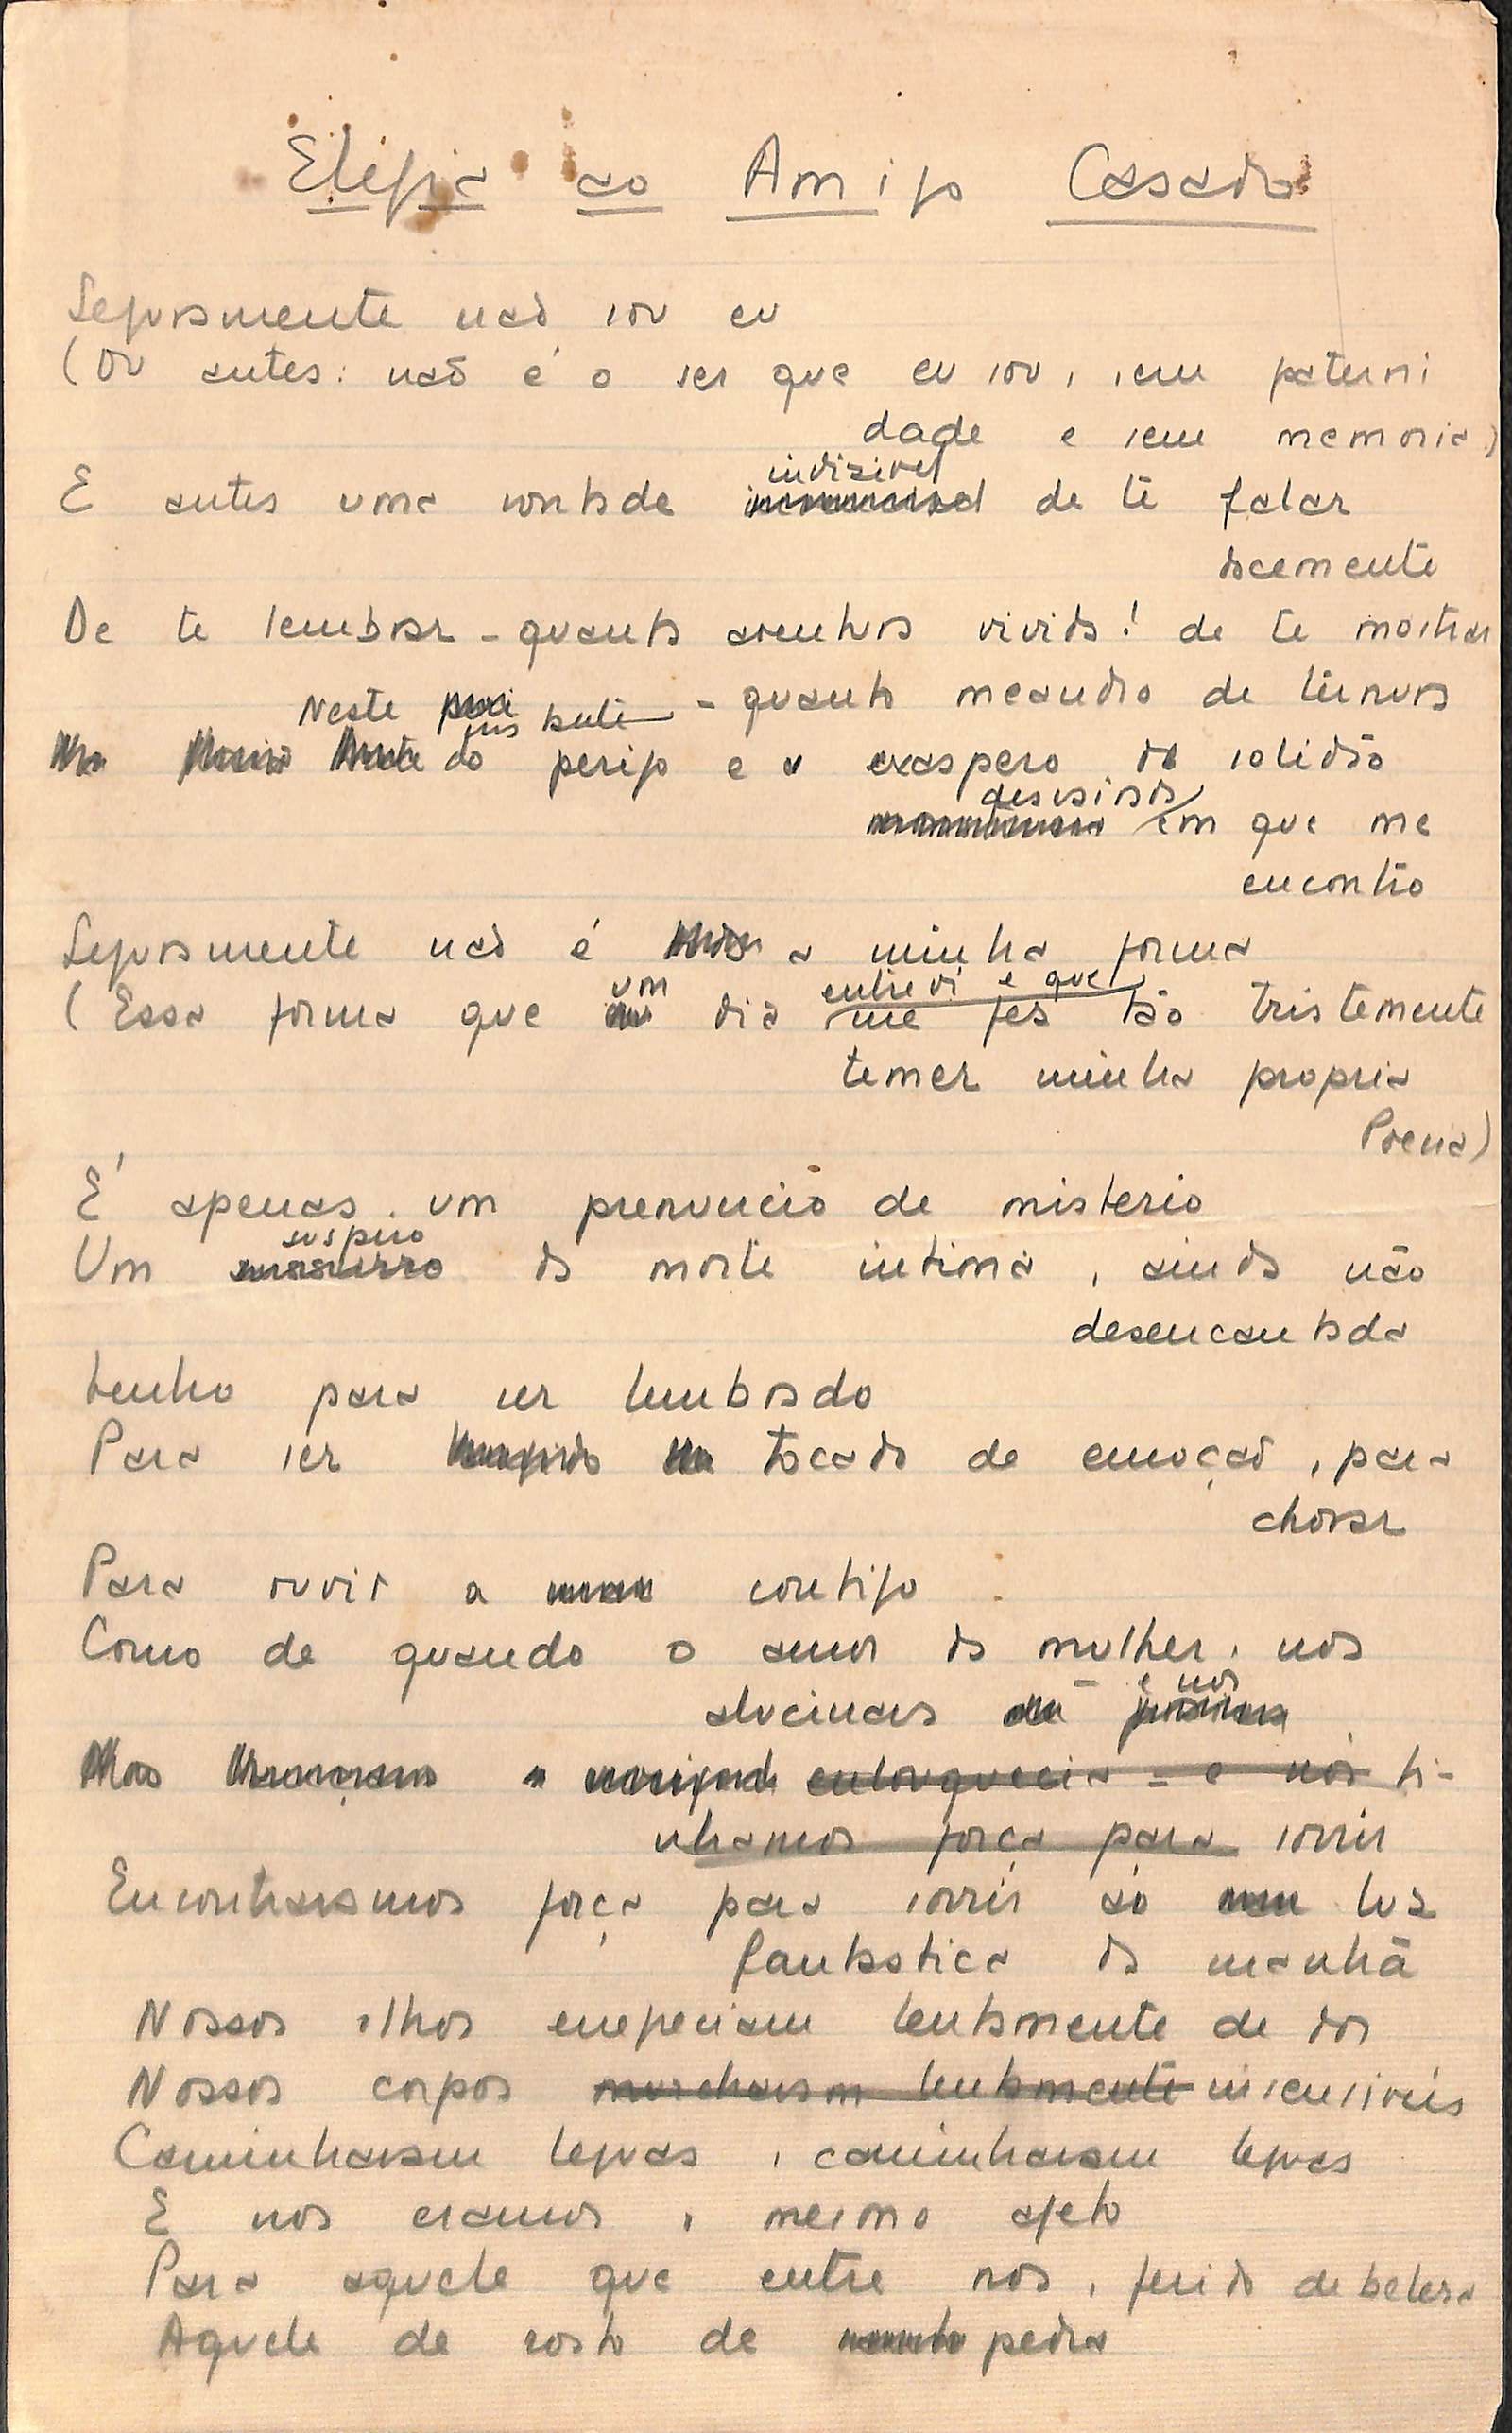 Elegia ao Amigo Casado
Seguramente não sou eu
(Ou antes: não é o ser que eu sou, sem paterni
dade e sem memoria)
indizivel
E antes uma vontade de te falar
docemente
De te lembrar - quanta aventura vivida! de te mostrar
Neste - quanto meandro de ternura
do perigo e a exaspero da solidão
em que me
encontro
Seguramente não é a minha forma
um entrevi e que
(Essa forma que dia me fez tão tristemente
temer minha propria
Poesia)
É apenas um prenuncio de misterio
suspiro
Um da morte intima, ainda não
desencantada
tenho para ser lembrado
Para ser tocado de emoção, para
chorar
Para ouvir a contigo
Como de quando o amor da mulher, nos
e nos
alucinava
Mas enlouquecia - e nós ti-
nhamos força para sorrir
Encontravamos força para sorrir ao luz
fantastica da manhã
Nossos olhos enegeciam lentamente de dor
Nossos corpos marchavam lentamente insensiveis
Caminhavam leguas, caminhavam leguas
E nos eramos o mesmo afeto
Para aquele que entre nos, ferido de beleza
Aquele de rosto de pedra